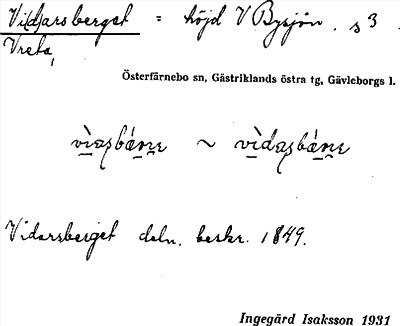 Vi(d)arsberget = höjd V Bysjön. s 3.
Vreta,
Österfärnebo sn, Gästriklands östra tg, Gävleborgs l.
Vidarsberget deln. beskr. 1849.
Ingegärd Isaksson 1931